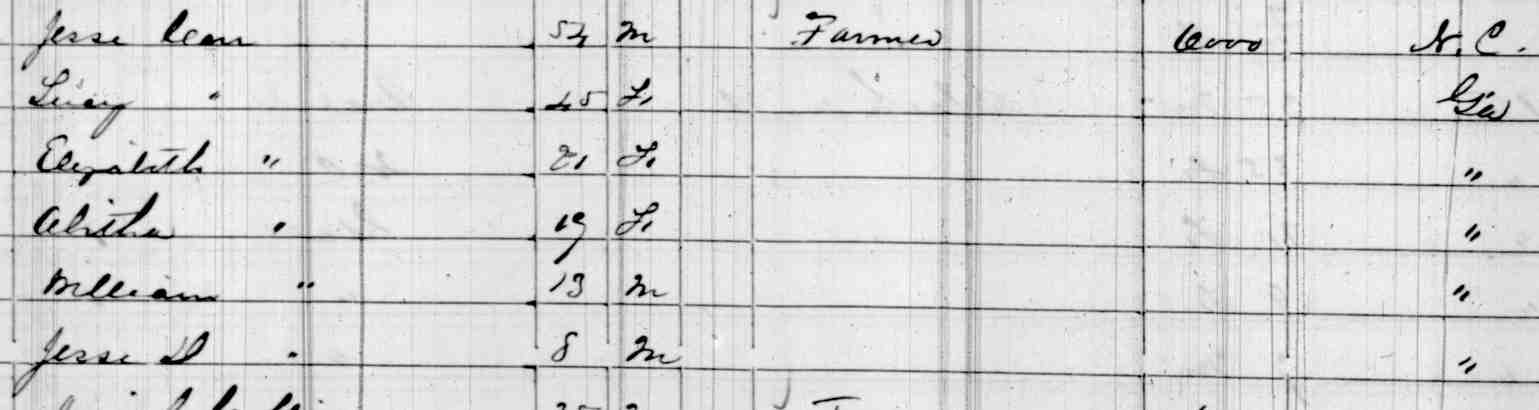 Jesse 54 M Farmer 6000 N.C.
Lucy " 45 F. Ga
Elizabeth " 21 F. "
Alitha " 19 F. "
William " 13 M "
Jesse D " 8 M "